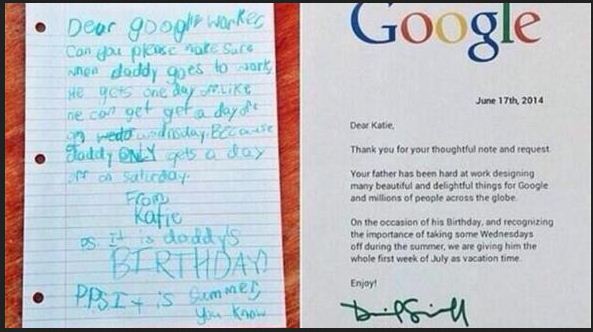 Dear google worker,
Can you please make sure
when daddy goes to work,
He gets one day off. Like
he can get get a day off
on wedo wednesday. Because
daddy ONLY gets a day
off on saturday.
From,
Katie
P.S. It is daddy's
BIRTHDAY!
PPS It is summer,
you know
Google
June 17th, 2014
Dear Katie,
Thank you for your thoughtful note and request.
Your father has been hard at work designing
many beautiful and delightful things for Google
and millions of people across the globe.
On the occasion of his Birthday, and recognizing
the importance of taking some Wednesdays
off during the summer, we are giving him the
whole first week of July as vacation time.
Enjoy!